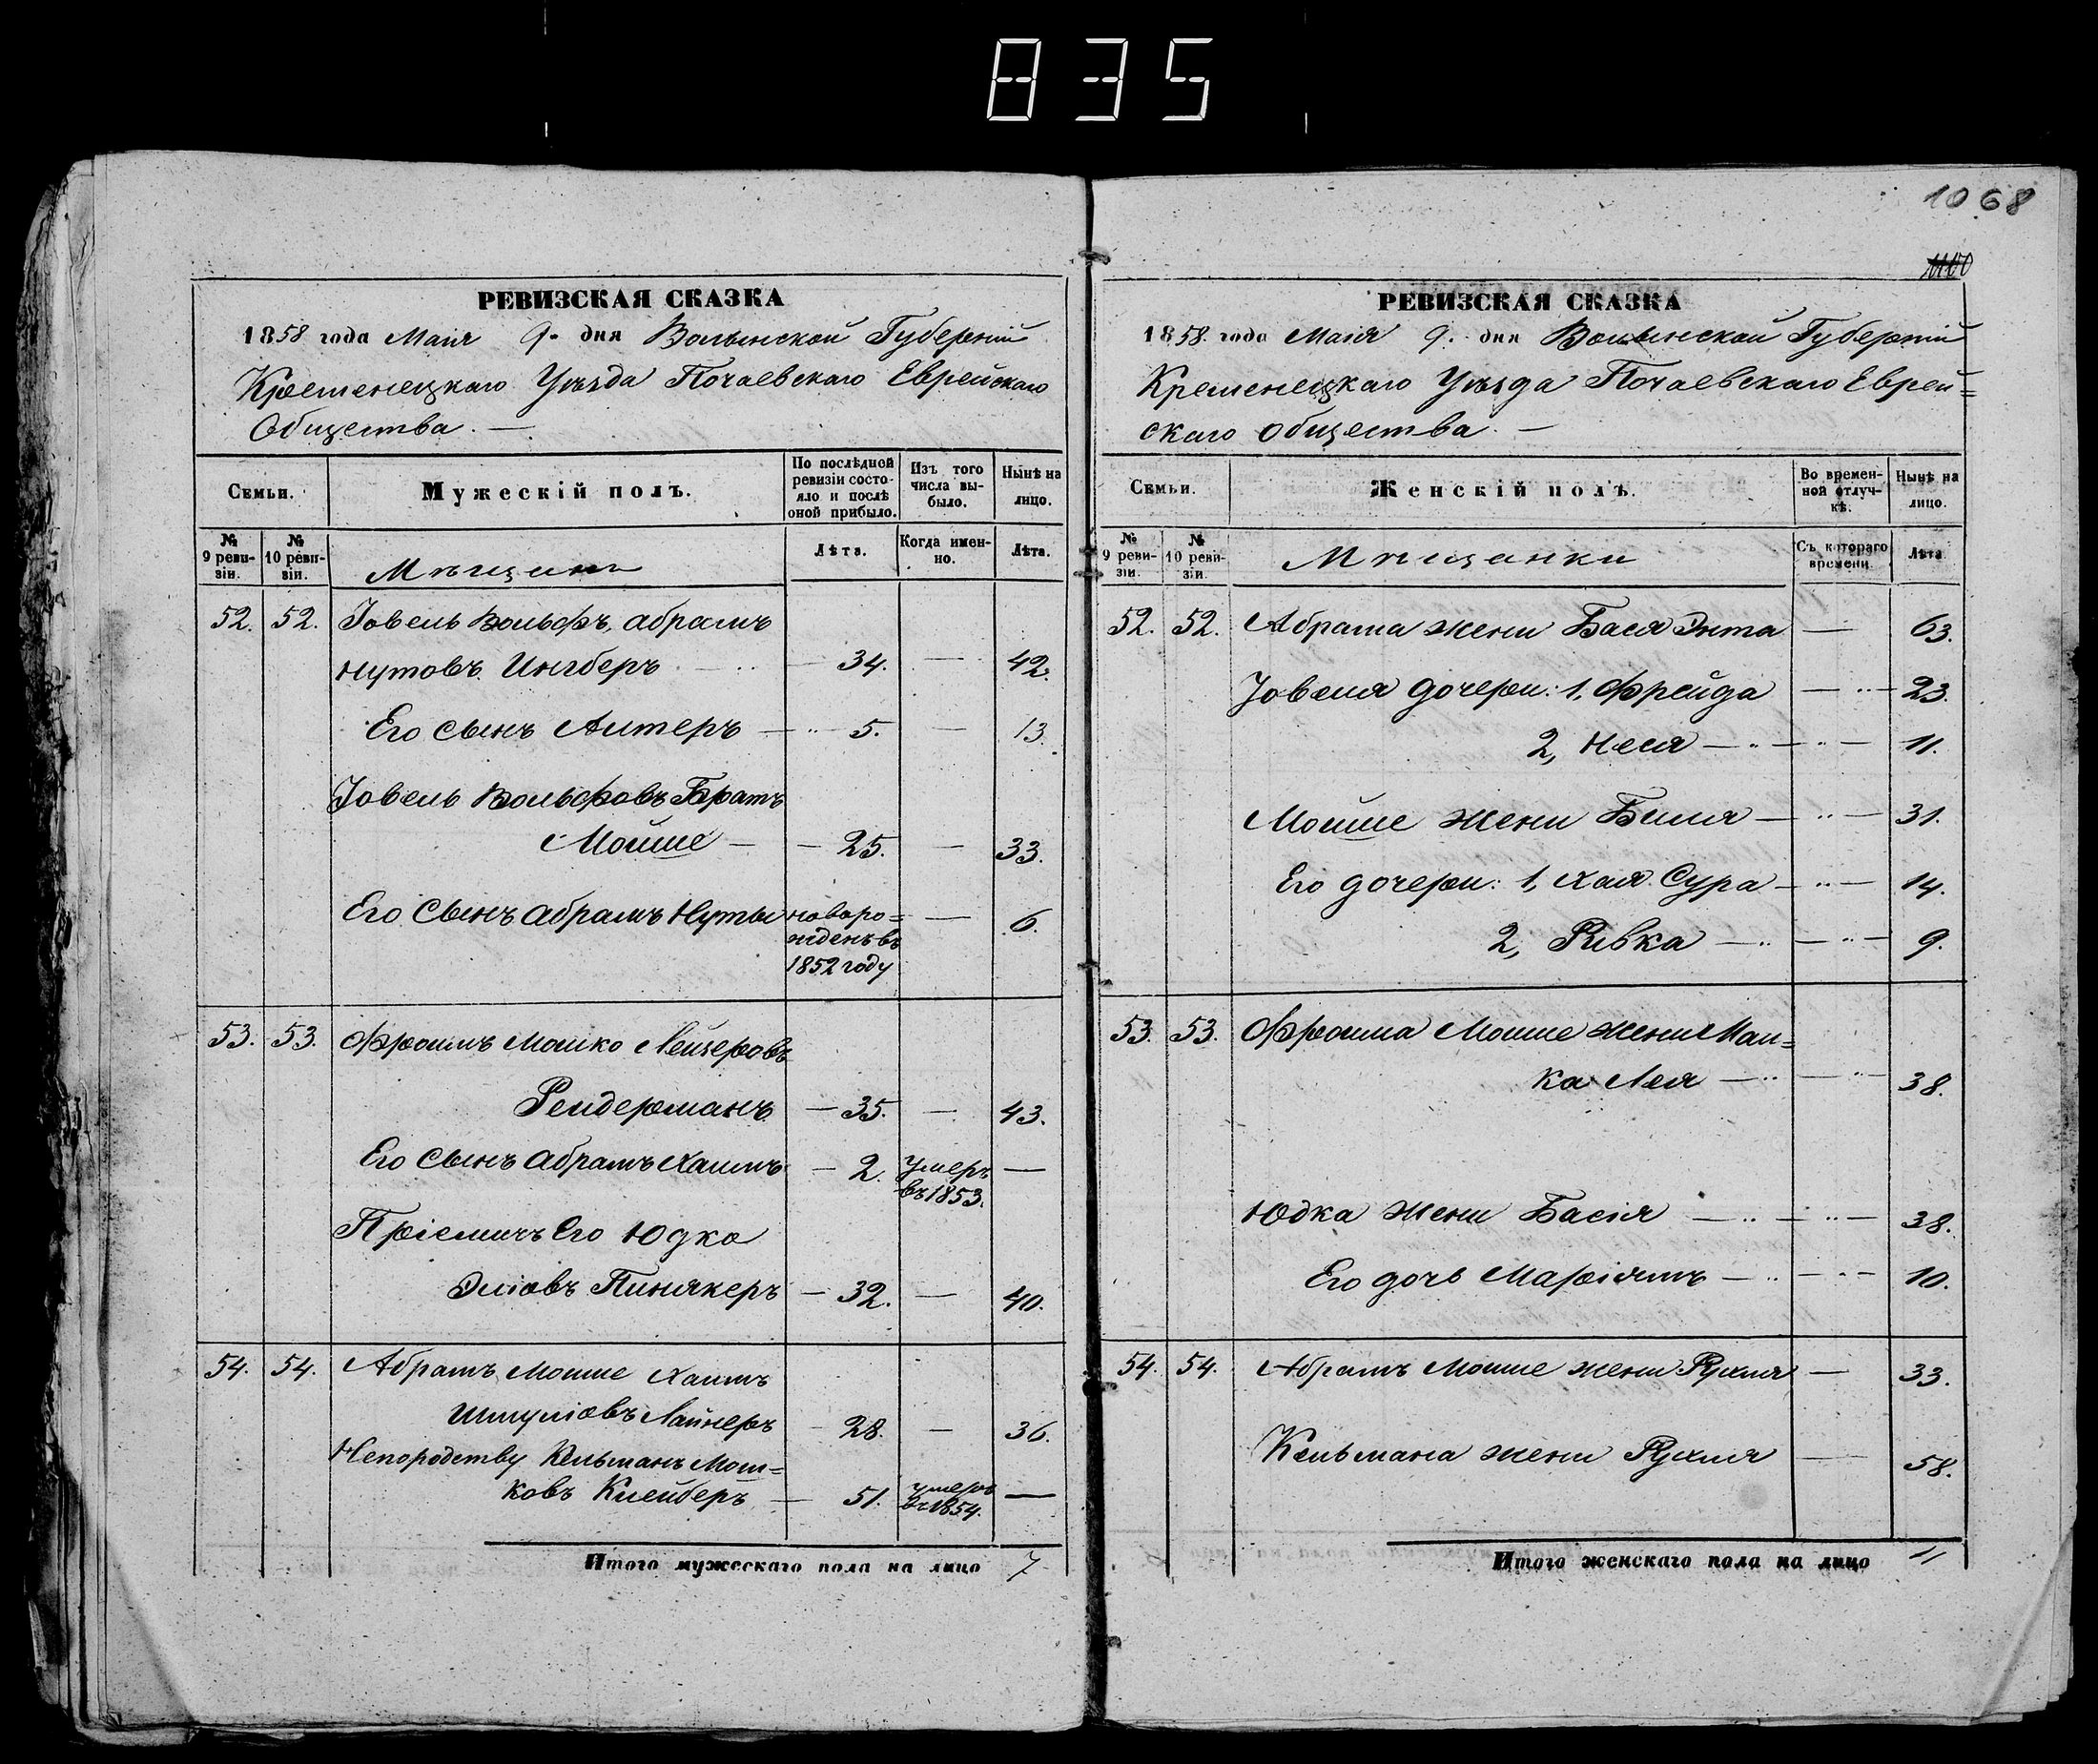 835
1068
1100
РЕВИЗСКАЯ СКАЗКА
1858 года Маия 9. дня Волынской Губерніи
Кременецкаго Уѣзда Почаевскаго Еврейскаго
Общества. —
Семьи.
Мужескій полъ.
По послѣдней ревизіи состояло и послѣ оной прибыло.
Изъ того числа выбыло.
Нынѣ на лицо.
№ 9 ревизіи.
№ 10 ревизіи.
Мѣщани
Лѣта.
Когда именно.
Лѣта.
52. 52. Іовель Вольфъ, Абрамъ
Нутовъ Ингберъ — 34. — 42.
Его сынъ Алтеръ — 5. — 13.
Іовель Вольфовъ Братъ
Мойше — 25. — 33.
Его Сынъ Абрамъ Нуты новоро= — 6.
жденъ въ
1852 году
53. 53. Фроимъ Мошко Лейзеровъ
Рендерманъ — 35. — 43.
Его Сынъ Абрамъ Хаимъ — 2. Умеръ —
въ 1853.
Пріемичъ Его Юдко
Эліовъ Пинякеръ — 32. — 40.
54. 54. Абрамъ Мошие Хаимъ
Шмуліовъ Лайнеръ — 28. — 36.
Непородству Кельманъ Мош=
ковъ Клейберъ — 51. умеръ —
въ 1854.
Итого мужескаго пола на лицо 7
РЕВИЗСКАЯ СКАЗКА
1858. года Маія 9. дня Волынской Губерніи
Кременецкаго Уѣзда Почаевскаго Еврей=
скаго Общества. —
Семьи.
Женскій полъ.
Во временной отлучкѣ.
Нынѣ на лицо.
№ 9 ревизіи.
№ 10 ревизіи.
Мѣщанки
Съ котораго времени.
Лѣта
52. 52. Абрама жени Бася Энта — 63.
Іовеля дочери: 1, Фрейда — 23.
2, Неся — 11.
Мойше жени Биля — 31.
Его дочери: 1, Хая Сура — 14.
2, Ривка — 9.
53. 53. Фроима Мошие жени Мал=
ка Лея — 38.
Юдка жени Басія — 38.
Его дочь Маріямъ — 10.
54. 54. Абрамъ Мошие жени Рухля — 33.
Кельмана жени Рухля — 58.
Итого женскаго пола на лицо 11